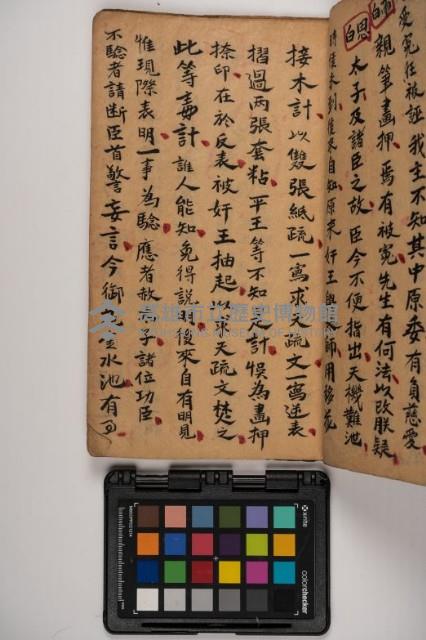 愛冤任被誣我主不知其中原委有負慈愛
親筆畫押焉有被冤先生有何法以改朕疑
白
太子及諸臣之故臣今不便指出天機難池
用移花
接木計以雙張紙疏一寫求天疏文一寫逆表
摺過兩張套粘平王等不知是計悞為畫押
捺印在於反表被奸王抽起將求天疏文焚之
此等毒計誰人能知免得說明後來自有明見
惟現際表明一事為驗應者赦太子諸位功臣
不驗者請斷臣首警妄言今御金水池有
高雄市立歷史博物館
x-rite
colorchecker